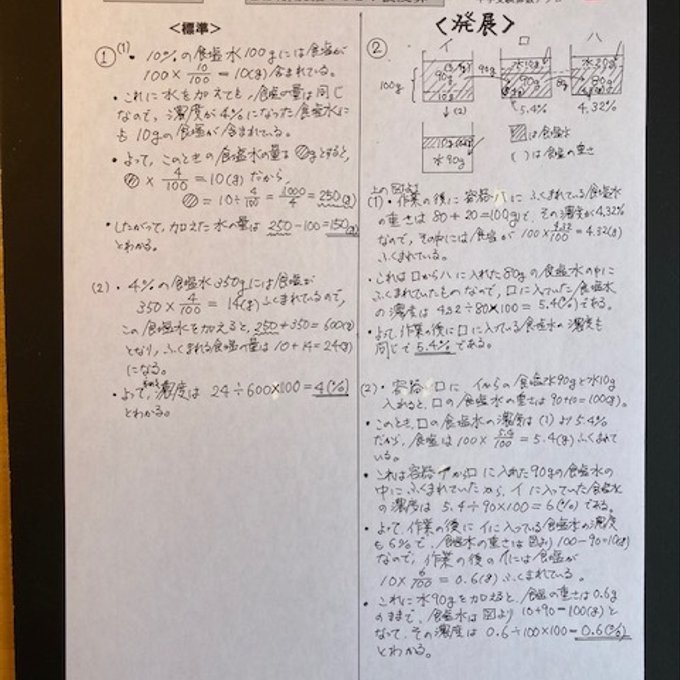 <標準>
① (1)・10%の食塩水100gには食塩が
100×10/100=10(g)含まれている。
・これに水を加えても、食塩の量は同じ
なので、濃度が4%になった食塩水に
も10gの食塩が含まれている。
・よって、このときの食塩水の量を〇gとすると、
〇×4/100=10(g)だから、
〇=10÷4/100=1000/4=250(g)
・したがって、加えた水の量は 250-100=150(g)
とわかる。
(2)・4%の食塩水350gには食塩が
350×4/100=14(g)ふくまれているので、
この食塩水を加えると、250+350=600(g)
となり、ふくまれる食塩の量は10+14=24(g)
になる。
・よって、濃度は 24÷600×100=4(%)
とわかる。
<発展>
②
イ ロ ハ
100g
90g 90g 水10g 90g 80g 水20g 80g
10g 5.4% 4.32%
↓(2)
水90g
は食塩水
( )は食塩の重さ
上の図より
(1)・作業の後に容器ハにふくまれている食塩水
の重さは80+20=100gで、その濃度が4.32%
なので、その中には食塩が100×4.32/100=4.32(g)
ふくまれている。
・これはロからハに入れた80gの食塩水の中に
ふくまれていたものなので、ロに入っていた食塩水
の濃度は 4.32÷80×100=5.4(%)である。
・よって、作業の後にロに入っている食塩水の濃度も
同じで5.4%である。
(2)・容器ロにイからの食塩水90gと水10g
入れると、ロの食塩水の重さは90+10=100(g)。
・このとき、ロの食塩水の濃度は(1)より5.4%
だから、食塩は100×5.4/100=5.4(g)ふくまれて
いる。
・これは容器イからロに入れた90gの食塩水の
中にふくまれていたから、イに入っていた食塩水
の濃度は 5.4÷90×100=6(%)である。
・よって、作業の後にイに入っている食塩水の濃度
も6%で、食塩水の重さは図より100-90=10(g)
なので、作業の後のイには食塩が
10×6/100=0.6(g)ふくまれている。
・これに水90gを加えると、食塩の重さは0.6g
のままで、食塩水は図より10+90=100(g)と
なって、その濃度は0.6÷100×100=0.6(%)
とわかる。